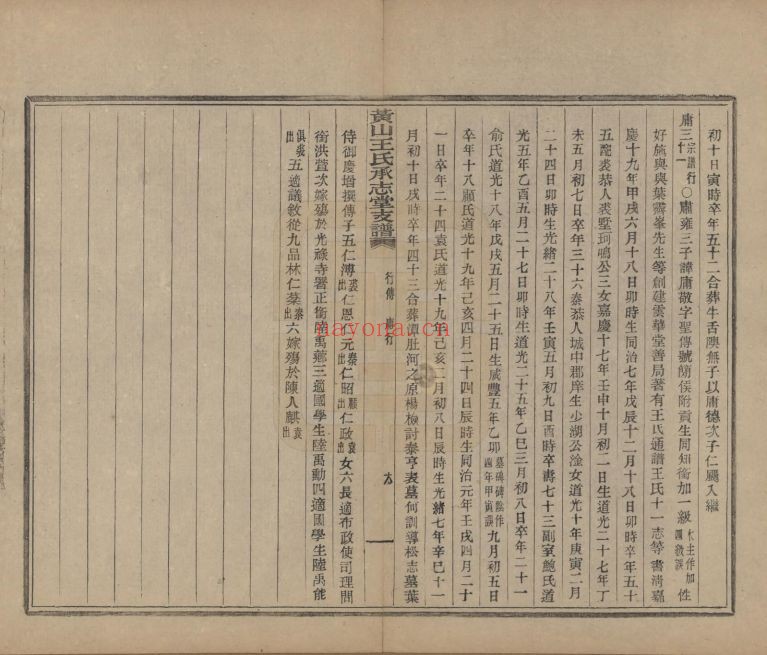 初十日寅時卒年五十二合葬牛舌隩無子以庸德次子仁颺入繼
庸三十一宗譜行〇肅雍三子諱庸敬字聖傳號簡侯附貢生同知銜加一級木主作加四級誤性
好施與與葉霽峯先生等創建雲華堂善局著有王氏通譜王氏十一志等書淸嘉
慶十九年甲戌六月十八日卯時生同治七年戊辰十二月十八日卯時卒年五十
五配裘恭人裘墅珂鳴公三女嘉慶十七年壬申十月初二日生道光二十七年丁
未五月初七日卒年三十六秦恭人城中郡庠生少湖公淦女道光十年庚寅二月
二十四日卯時生光緒二十八年壬寅五月初九日酉時卒壽七十三副室鮑氏道
光五年乙酉五月二十七日卯時生道光二十五年乙巳三月初八日卒年二十一
俞氏道光十八年戊戌五月二十五日生咸豐五年乙卯墓碑碑陰作四年甲寅誤九月初五日
卒年十八顧氏道光十九年己亥四月二十四日辰時生同治元年壬戌四月二十
一日卒年二十四袁氏道光十九年己亥二月初八日辰時生光緒七年辛巳十一
月初十日戌時卒年四十三合葬潭肚河之原楊檢討泰亨表墓何訓導松志墓葉
黃山王氏承志堂支譜
行傳 庸行
侍御慶增撰傳子五仁溥裘出仁恩仁元秦出仁昭顧出仁政袁出女六長適布政使司理問
銜洪萱次嫁殤於光祿寺署正銜陸禹薌三適國學生陸禹勳四適國學生陸禹能
俱裘出五適議敘從九品林仁棻秦出六嫁殤於陳人麒袁出
nayona.cn